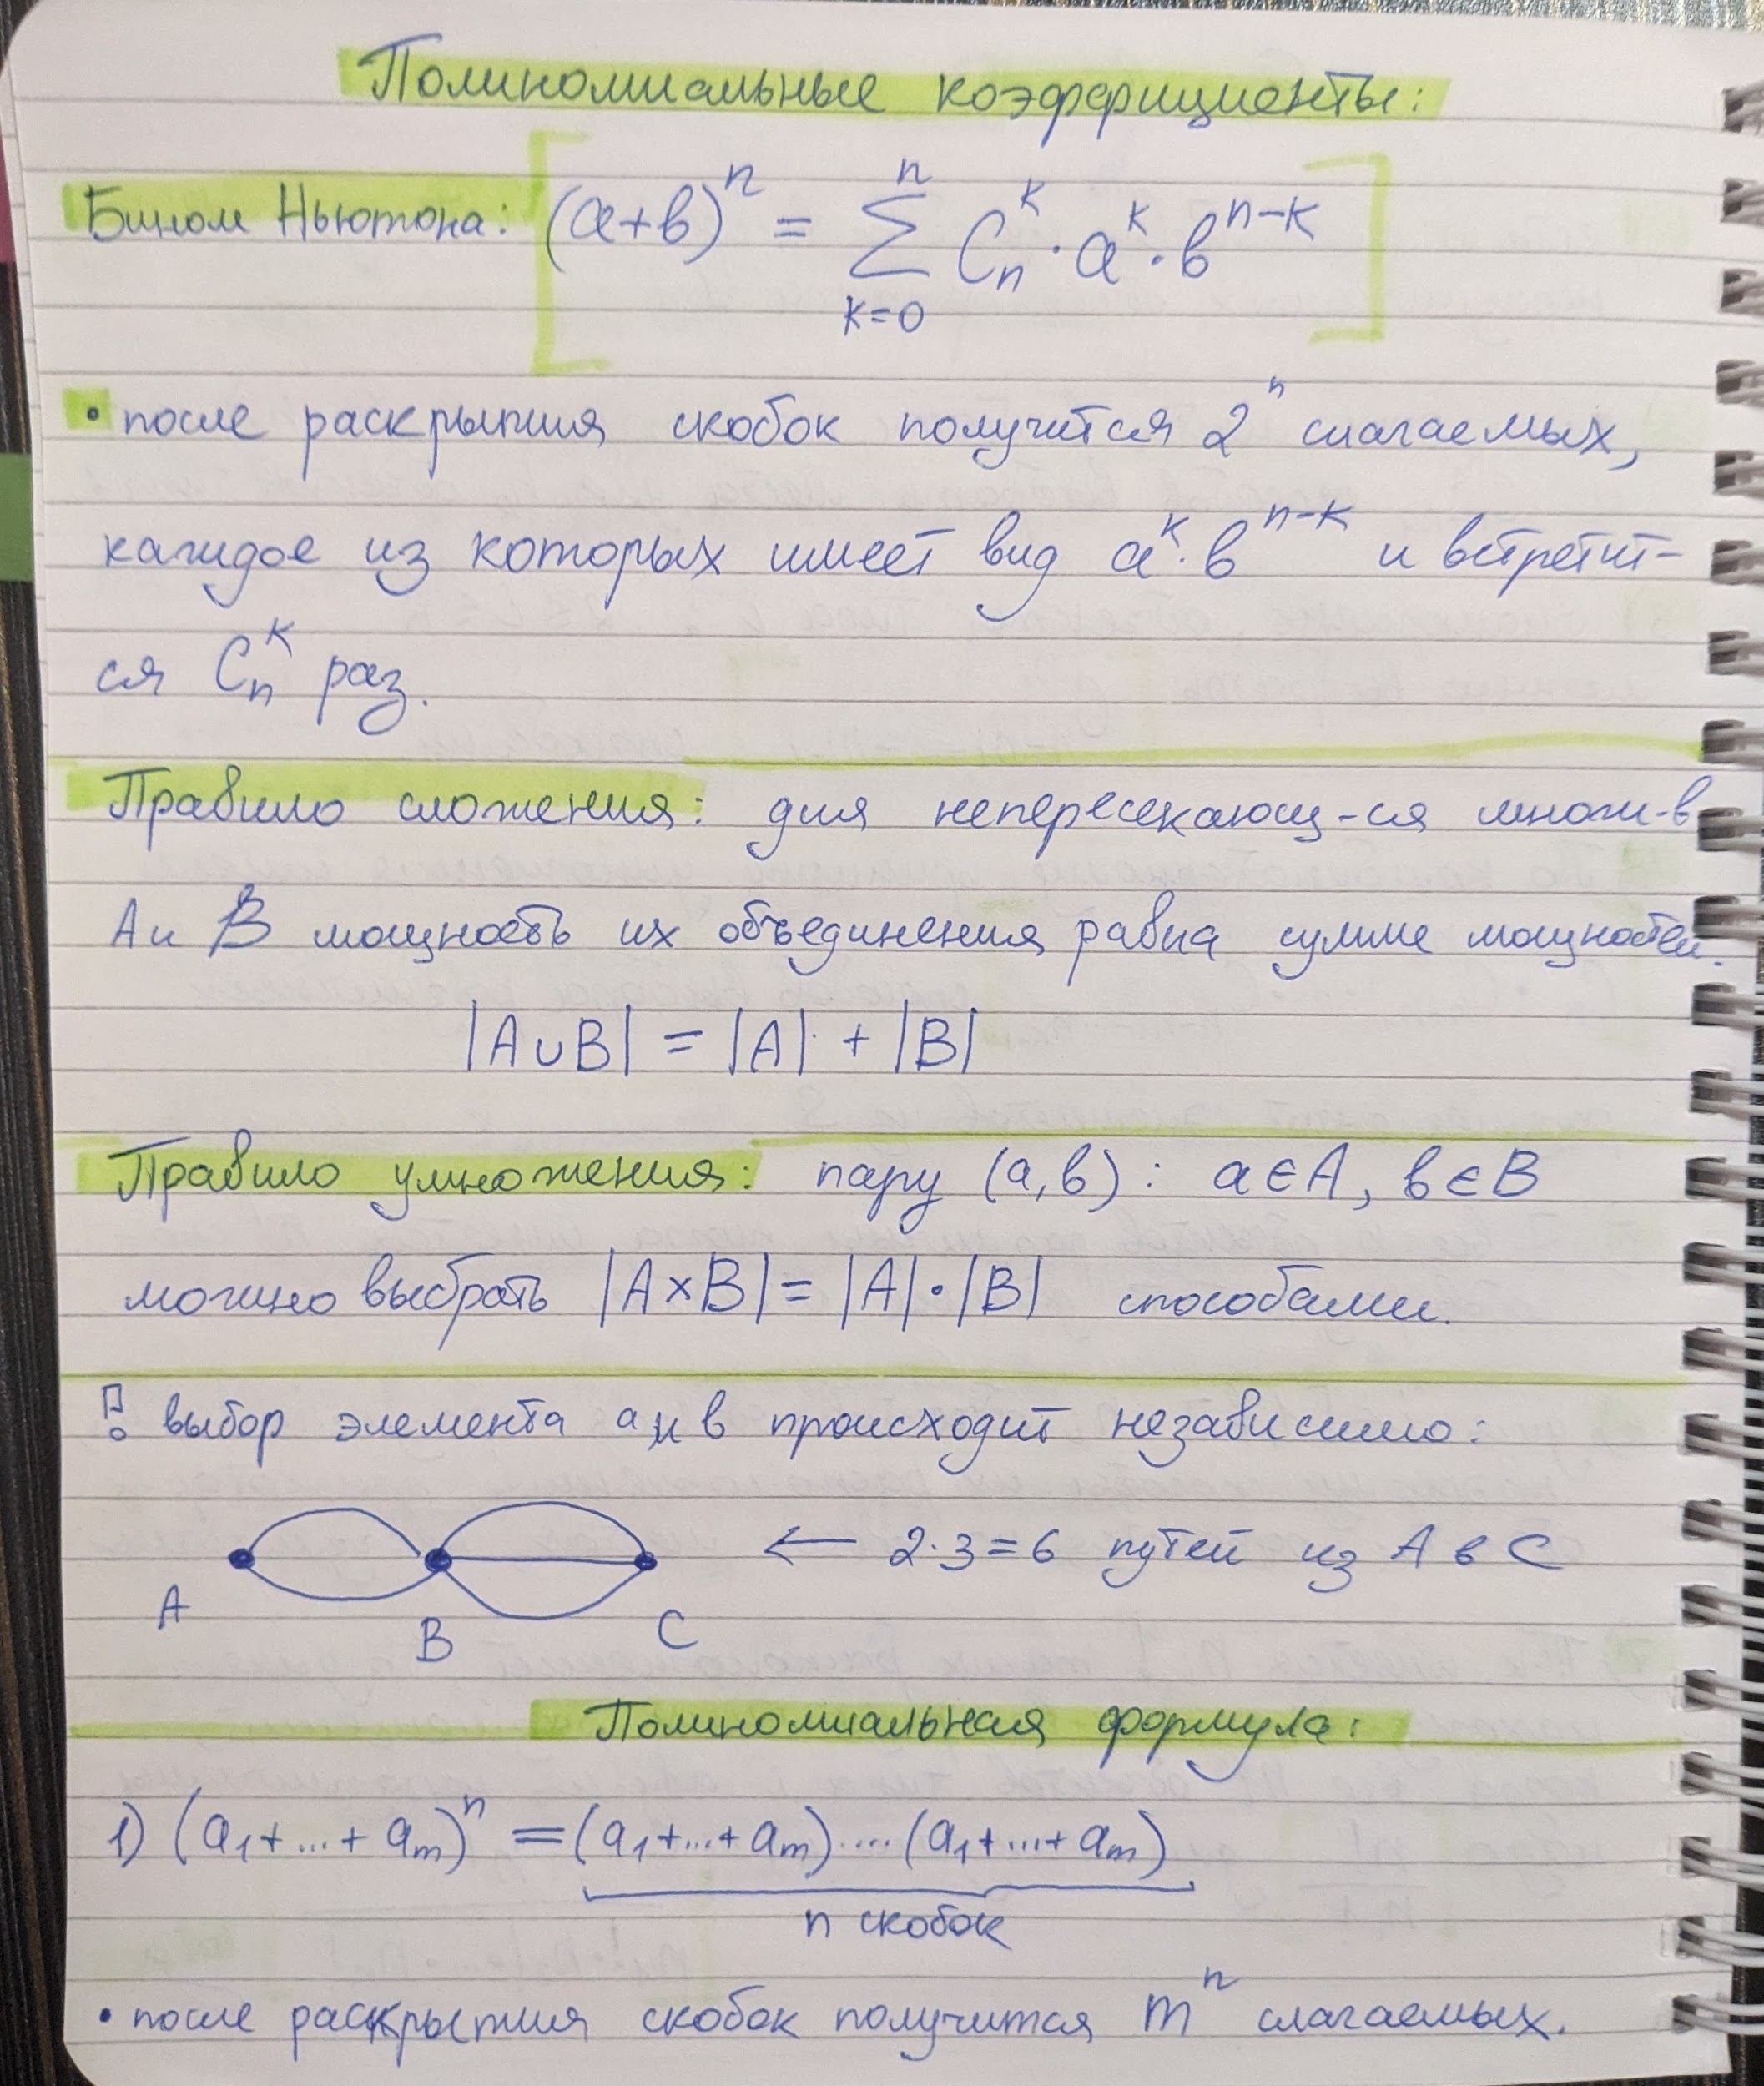 Полиномиальные коэффициенты:
Бином Ньютона: (a+b)^n = ∑_{k=0}^{n} C_n^k · a^k · b^{n-k}
• после раскрытия скобок получится 2^n слагаемых,
каждое из которых имеет вид a^k · b^{n-k} и встретит-
ся C_n^k раз.
Правило сложения: для непересекающ-ся множ-в
A и B мощность их объединения равна сумме мощностей.
|A∪B| = |A| + |B|
Правило умножения: пару (a,b): a∈A, b∈B
можно выбрать |A×B| = |A|·|B| способами.
! выбор элемента a и b происходит независимо:
← 2·3=6 путей из A в C
A B C
Полиномиальная формула:
1) (a₁+...+aₘ)^n = (a₁+...+aₘ)....(a₁+...+aₘ)
n скобок
• после раскрытия скобок получится m^n слагаемых.